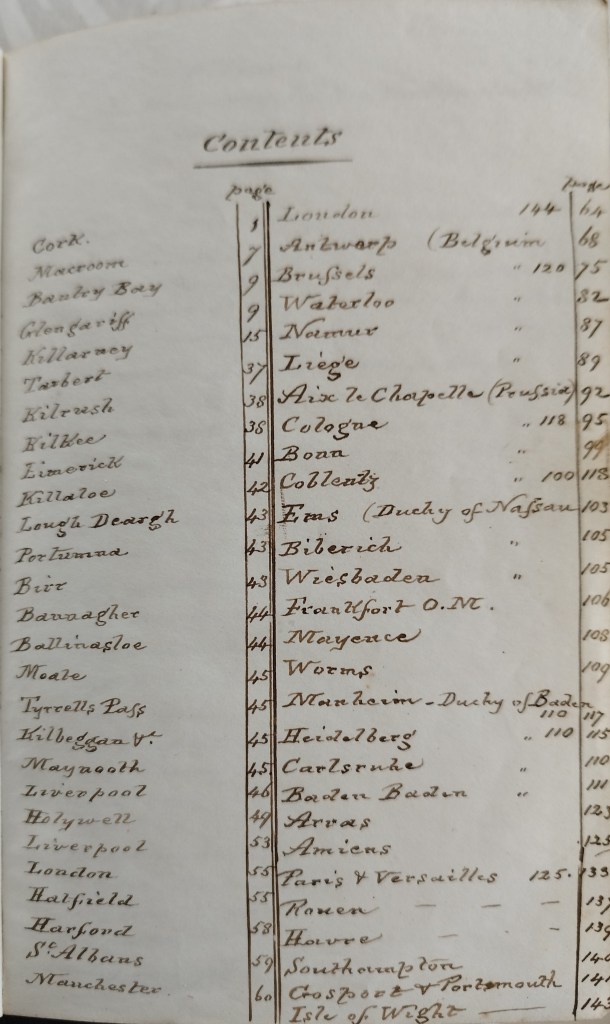 Contents
page
Cork. 1
Macroom 7
Bantry Bay 9
Glengariff 9
Killarney 15
Tarbert 37
Kilrush 38
Kilkee 38
Limerick 41
Killaloe 42
Lough Deargh 43
Portumna 43
Birr 43
Bannagher 44
Ballinasloe 44
Moate 45
Tyrrells Pass 45
Kilbeggan &c. 45
Maynooth 45
Liverpool 46
Holywell 49
Liverpool 53
London 55
Hatfield 55
Harford 58
St. Albans 59
Manchester 60
page
London 144 64
Antwerp (Belgium 68
Brussels " 120 75
Waterloo " 82
Namur " 87
Liége " 89
Aix le Chapelle (Prussia) 92
Cologne " 118 95
Bonn " 99
Coblentz " 100 118
Ems (Duchy of Nassau 103
Biberich " 105
Wiesbaden " 105
Frankfort O.M. 106
Mayence 108
Worms 109
Manheim - Duchy of Baden
110 117
Heidelberg " 110 115
Carlsruhe " 110
Baden Baden " 111
Arras 123
Amiens 125
Paris & Versailles 125. 133
Rouen — — — 137
Havre — — 139
Southampton 140
Gosport & Portsmouth 141
Isle of Wight — 143